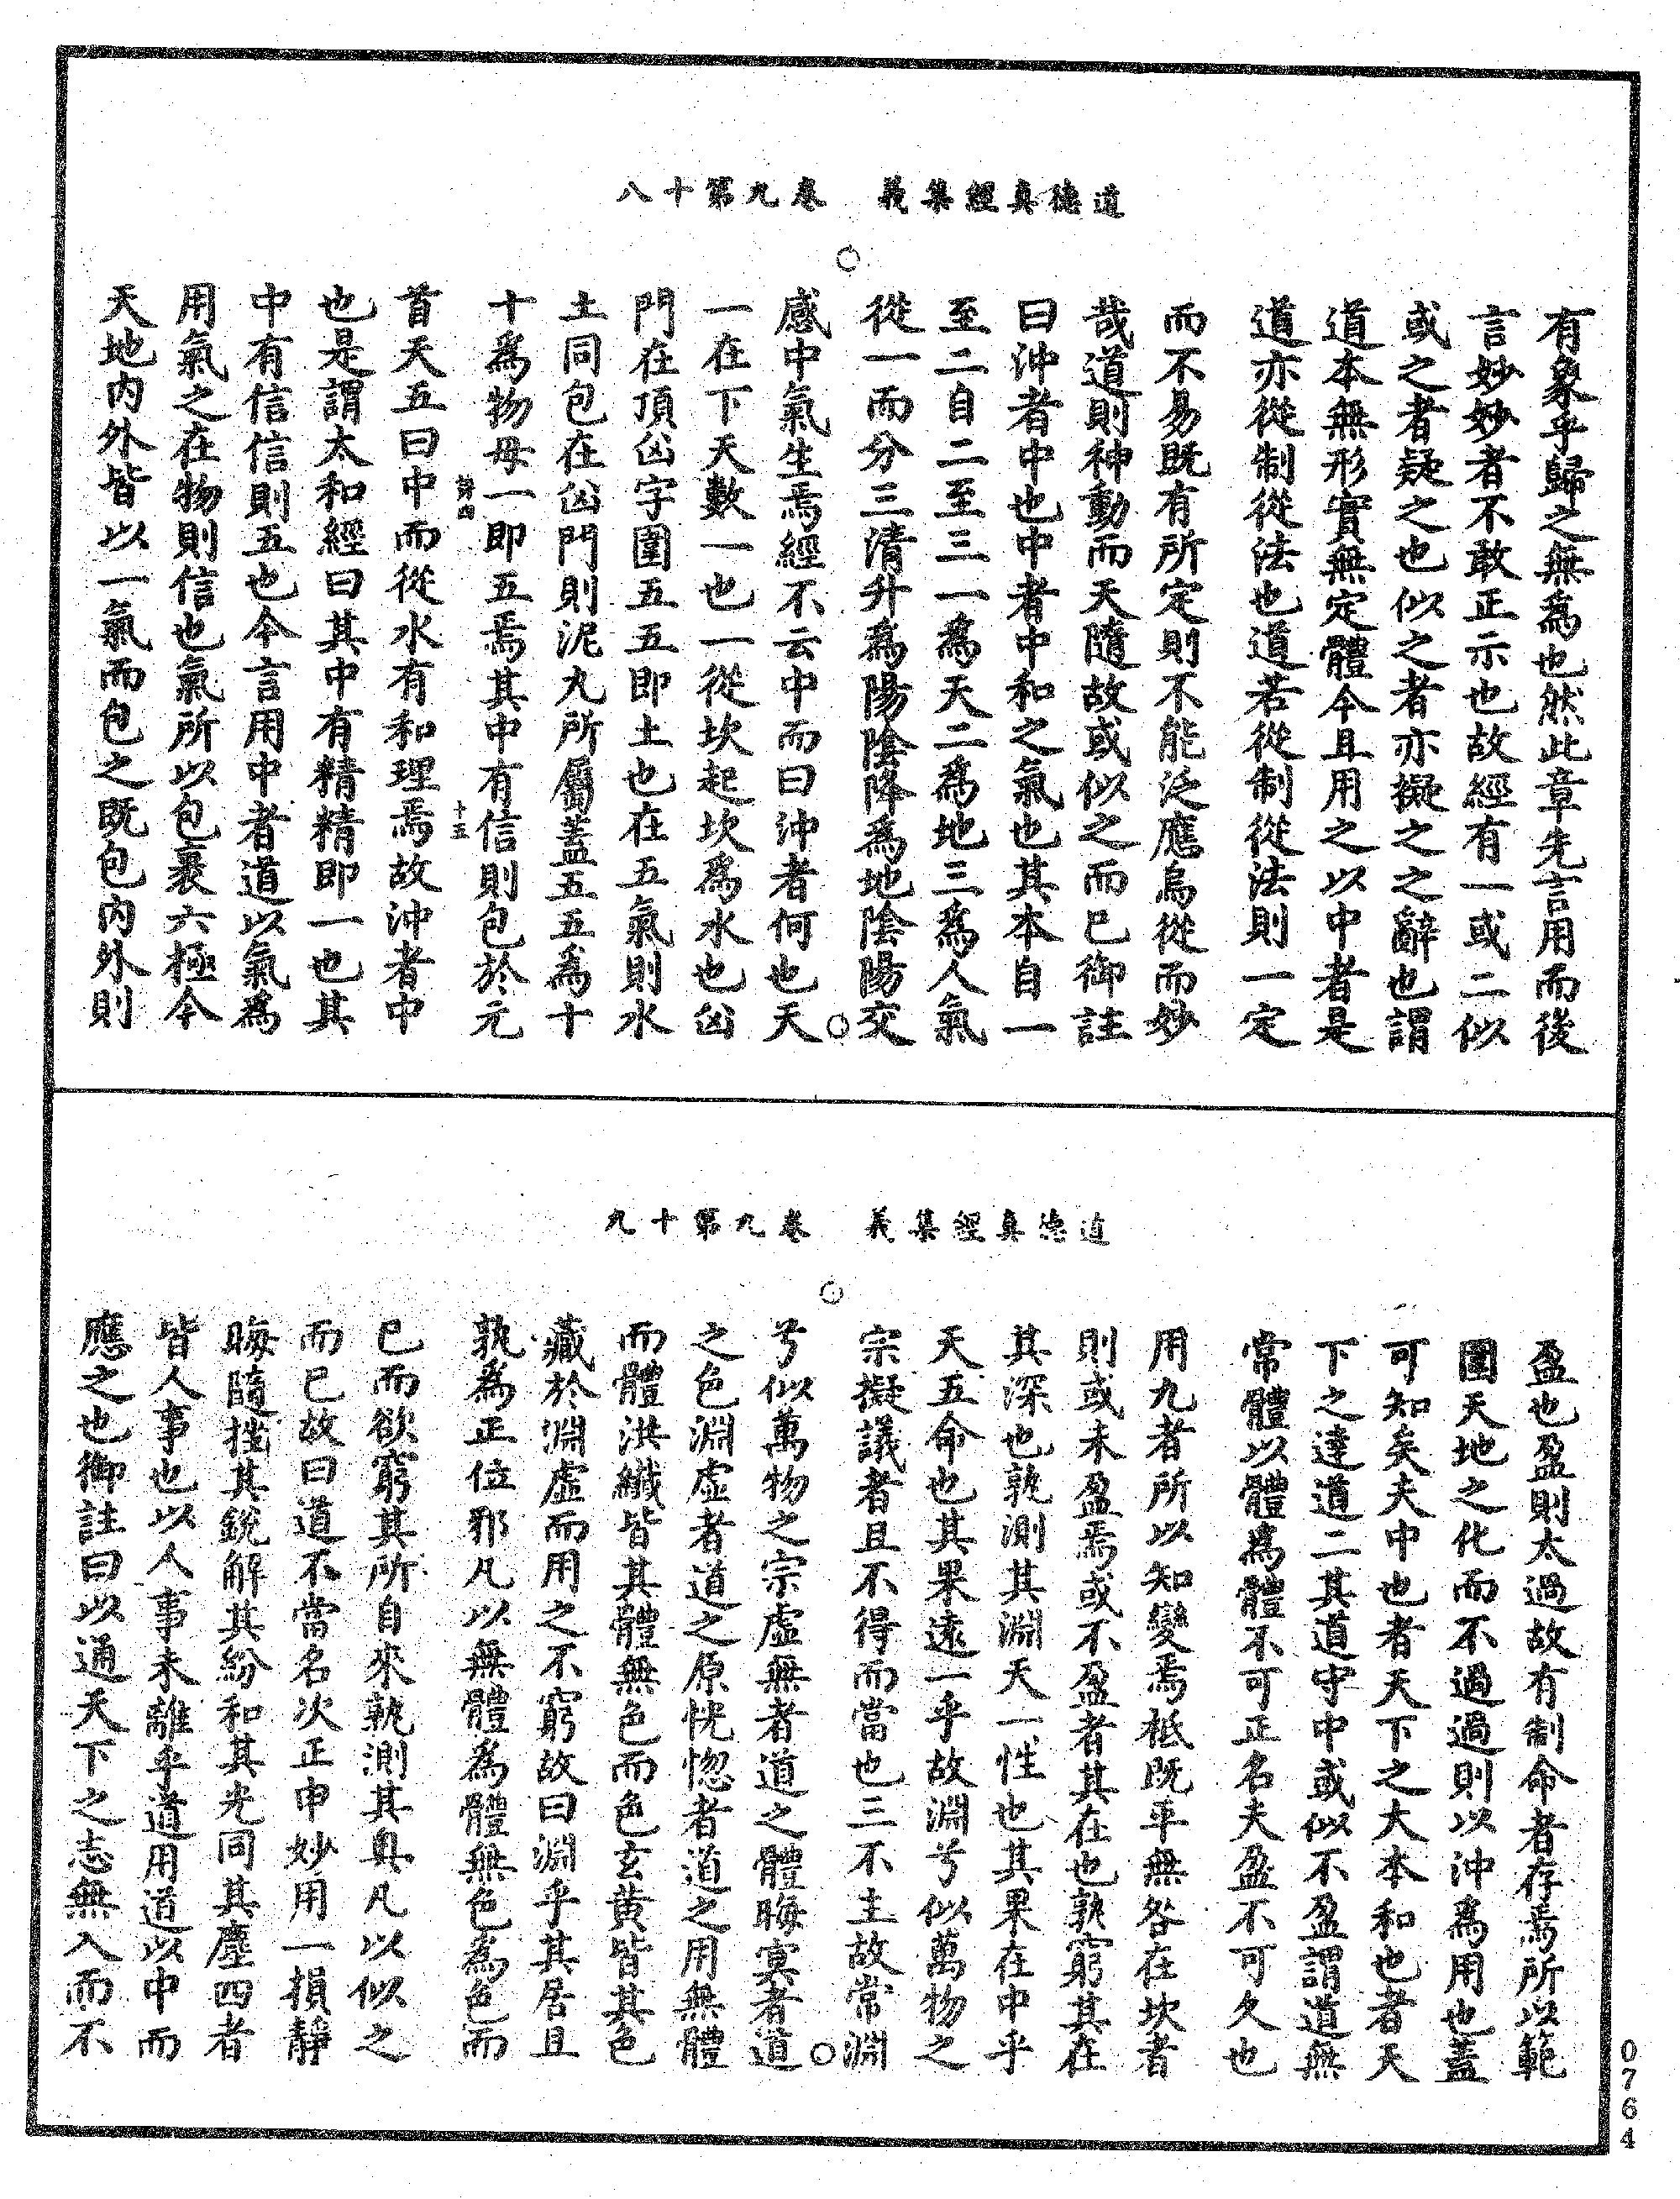 道德真經集義　卷九第十八
有象乎歸之無為也然此章先言用而後
言妙妙者不敢正示也故經有一或二似
或之者疑之也似之者亦擬之之辭也謂
道本無形實無定體今且用之以中者是
道亦從制從法也道若從制從法則一定
而不易既有所定則不能泛應烏從而妙
哉道則神動而天隨故或似之而已御註
曰沖者中也中者中和之氣也其本自一
至二自二至三一為天二為地三為人氣
從一而分三清升為陽陰降為地陰陽交
感中氣生焉經不云中而曰沖者何也天
一在下天數一也一從坎起坎為水也囟
門在頂囟字圍五五即土也在五氣則水
土同包在囟門則泥丸所屬蓋五五為十
十為物母一即五焉其中有信則包於元
詩四　十五
首天五曰中而從水有和理焉故沖者中
也是謂太和經曰其中有精精即一也其
中有信信則五也今言用中者道以氣為
用氣之在物則信也氣所以包裹六極今
天地內外皆以一氣而包之既包內外則
道德真經集義　卷九第十九
盈也盈則太過故有制命者存焉所以範
圍天地之化而不過過則以沖為用也蓋
可知矣夫中也者天下之大本和也者天
下之達道二其道守中或似不盈謂道無
常體以體為體不可正名夫盈不可久也
用九者所以知變焉祗既平無咎在坎者
則或未盈焉或不盈者其在也孰窮其在
其深也孰測其淵天一性也其果在中乎
天五命也其果遠一乎故淵兮似萬物之
宗擬議者且不得而當也三不土故常淵
兮似萬物之宗虛無者道之體晦冥者道
之色淵虛者道之原恍惚者道之用無體
而體洪纖皆其體無色而色玄黃皆其色
藏於淵虛而用之不窮故曰淵乎其居且
孰為正位邪凡以無體為體無色為色而
已而欲窮其所自來孰測其奧凡以似之
而已故曰道不當名次正申妙用一損靜
晦隨挫其銳解其紛和其光同其塵四者
皆人事也以人事未離乎道用道以中而
應之也御註曰以通天下之志無入而不
0764